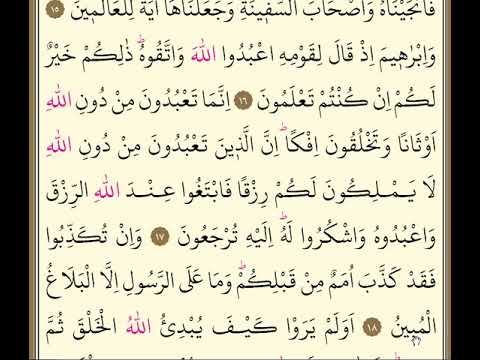 فَاَنْجَيْنَاهُ وَاَصْحَابَ السَّفٖينَةِ وَجَعَلْنَاهَا اٰيَةً لِلْعَالَمٖينَ ١٥
وَاِبْرٰهٖيمَ اِذْ قَالَ لِقَوْمِهِ اعْبُدُوا اللّٰهَ وَاتَّقُوهُ ذٰلِكُمْ خَيْرٌ
لَكُمْ اِنْ كُنْتُمْ تَعْلَمُونَ ١٦ اِنَّمَا تَعْبُدُونَ مِنْ دُونِ اللّٰهِ
اَوْثَانًا وَتَخْلُقُونَ اِفْكًا اِنَّ الَّذٖينَ تَعْبُدُونَ مِنْ دُونِ اللّٰهِ
لَا يَمْلِكُونَ لَكُمْ رِزْقًا فَابْتَغُوا عِنْدَ اللّٰهِ الرِّزْقَ
وَاعْبُدُوهُ وَاشْكُرُوا لَهُ اِلَيْهِ تُرْجَعُونَ ١٧ وَاِنْ تُكَذِّبُوا
فَقَدْ كَذَّبَ اُمَمٌ مِنْ قَبْلِكُمْ وَمَا عَلَى الرَّسُولِ اِلَّا الْبَلَاغُ
الْمُبٖينُ ١٨ اَوَلَمْ يَرَوْا كَيْفَ يُبْدِئُ اللّٰهُ الْخَلْقَ ثُمَّ